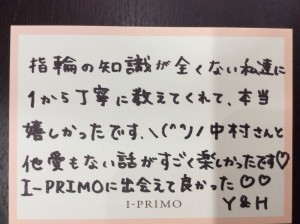 指輪の知識が全くない私達に
1から丁寧に教えてくれて、本当
嬉しかったです。\(^^)/ 中村さんと
他愛もない話がすごく楽しかったです♡
I-PRIMOに出会えて良かった♡♡
I-PRIMO Y&H